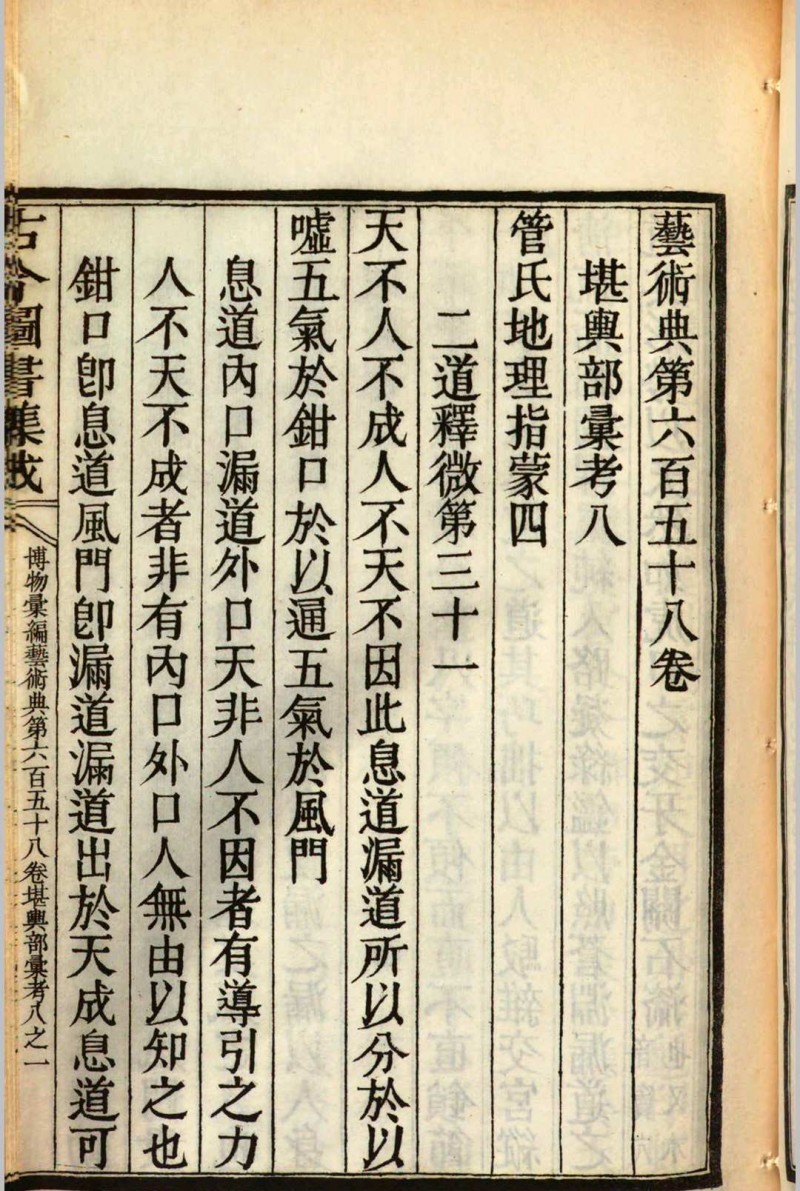 藝術典第六百五十八卷
堪輿部彙考八
管氏地理指蒙四
二道釋微第三十一
天不人不成人不天不因此息道漏道所以分於以
噓五氣於鉗口於以通五氣於風門
息道內口漏道外口天非人不因者有導引之力
人不天不成者非有內口外口人無由以知之也
鉗口卽息道風門卽漏道漏道出於天成息道可
古今圖書集成
博物彙編藝術典第六百五十八卷堪輿部彙考八之一